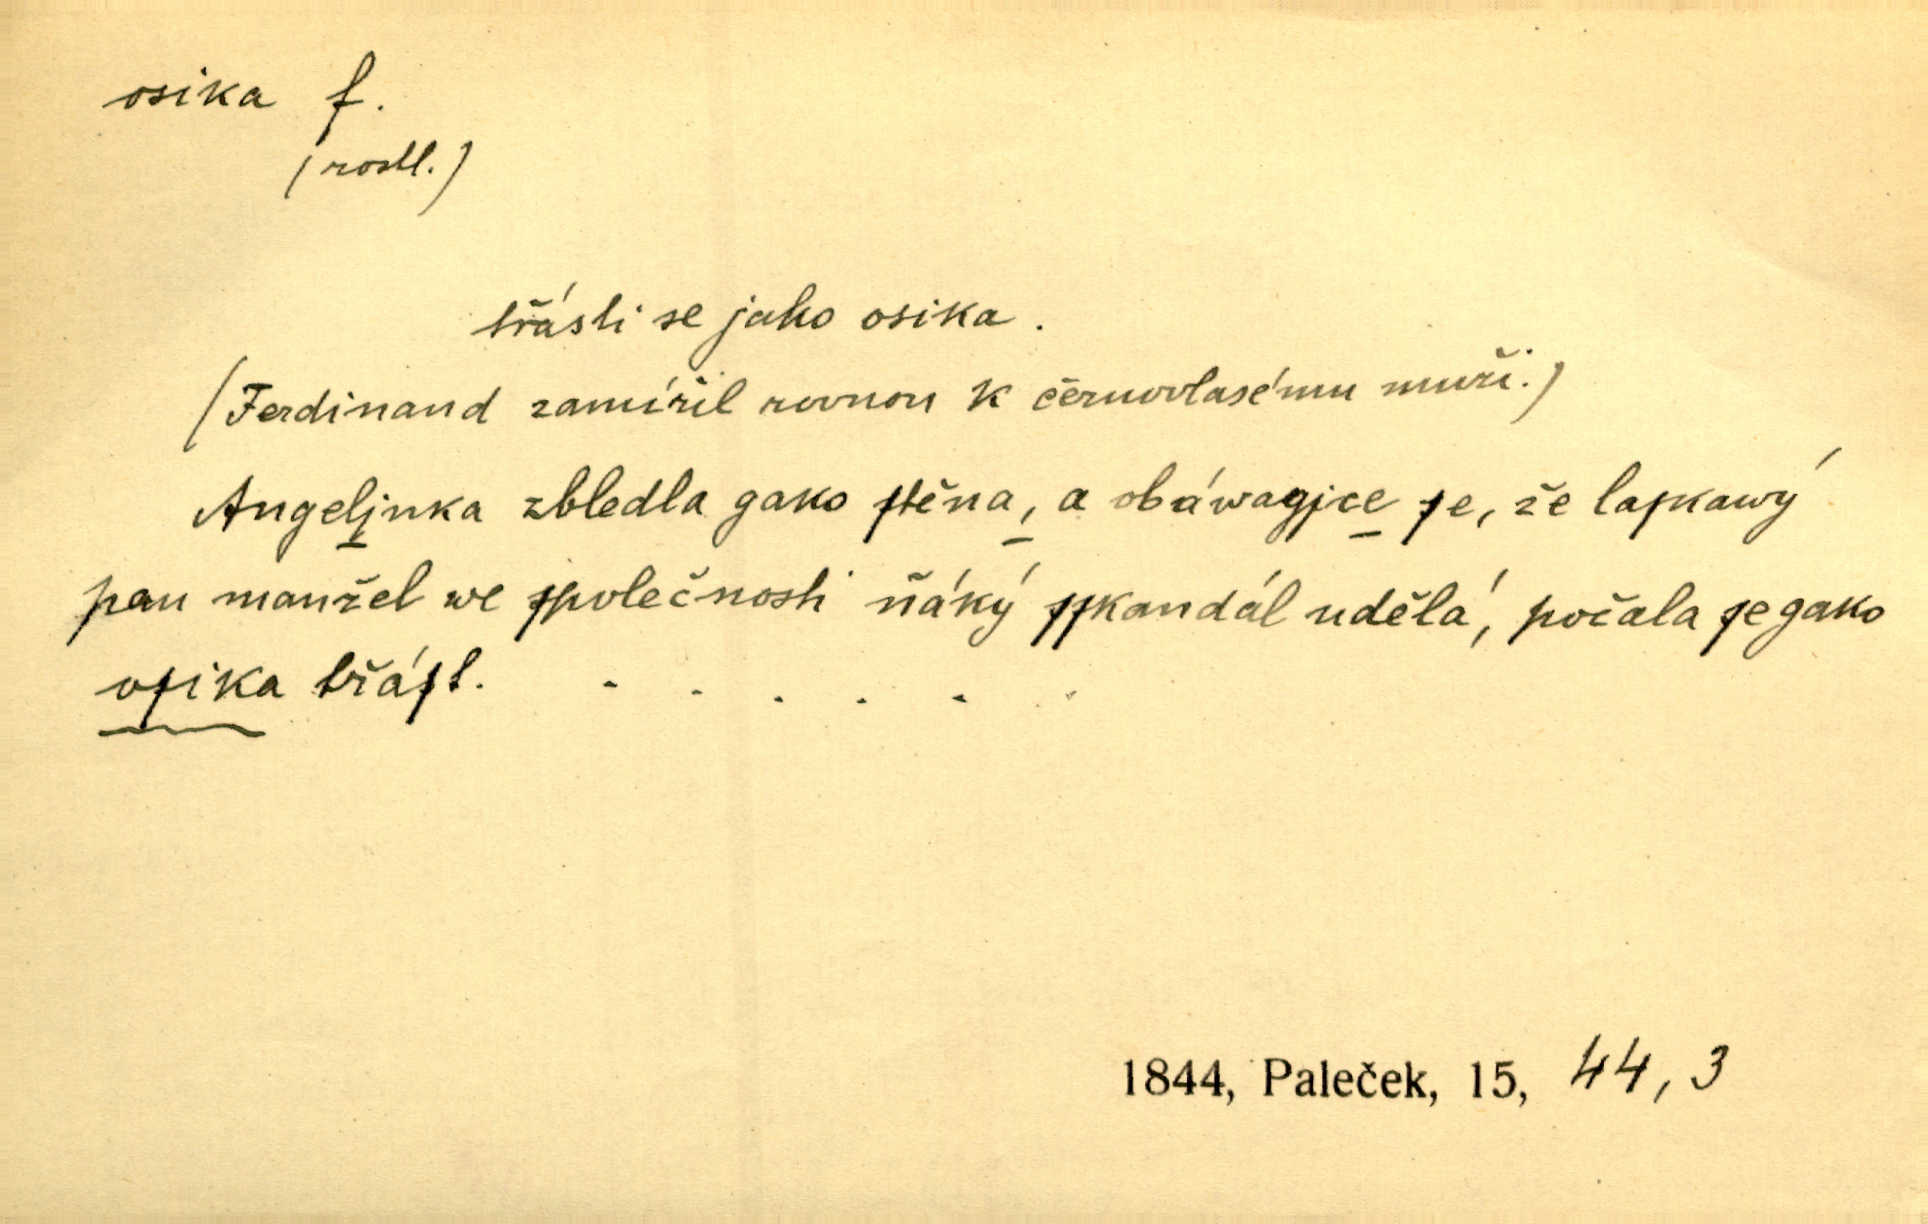 osika f.
(rostl.)
třásti se jako osika.
(Ferdinand zamířil rovnou k černovlasému muži.)
Angeljnka zbledla gako ſtěna, a obáwagjce ſe, že laſkawý
pan manžel we ſpolečnosti ňáký ſſkandál udělá, počala ſe gako
oſika třáſt. . . . . . .
1844, Paleček, 15, 44, 3